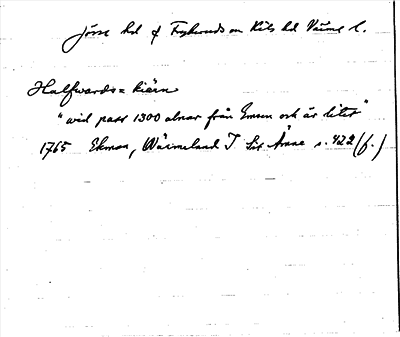 Jösse hd & Fryksände sn Kils hd Värml l.
Halfwards=kiärn
"wid pass 1300 alnar från Emsen och är litet"
1765 Ekman, Wärmeland I s. 422 (f.)